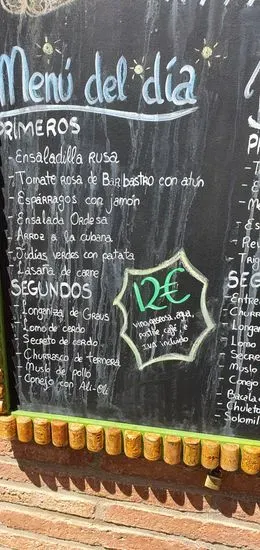 Menú del día
PRIMEROS
- Ensaladilla rusa
- Tomate rosa de Barbastro con atún
- Espárragos con jamón
- Ensalada Ordesa
- Arroz a la cubana
- Judías verdes con patata
- Lasaña de carne
SEGUNDOS
- Longaniza de Graus
- Lomo de cerdo
- Secreto de cerdo
- Churrasco de ternera
- Muslo de pollo
- Conejo con Ali-Oli
12€
vino, gaseosa, agua,
postre café e
IVA incluido
P
- En
- E
- M
- E
- Rev
- Trig
SEG
Entre
Churr
Longan
Lomo
Secre
Muslo
Conejo
Bacala
Chulet
Solomil